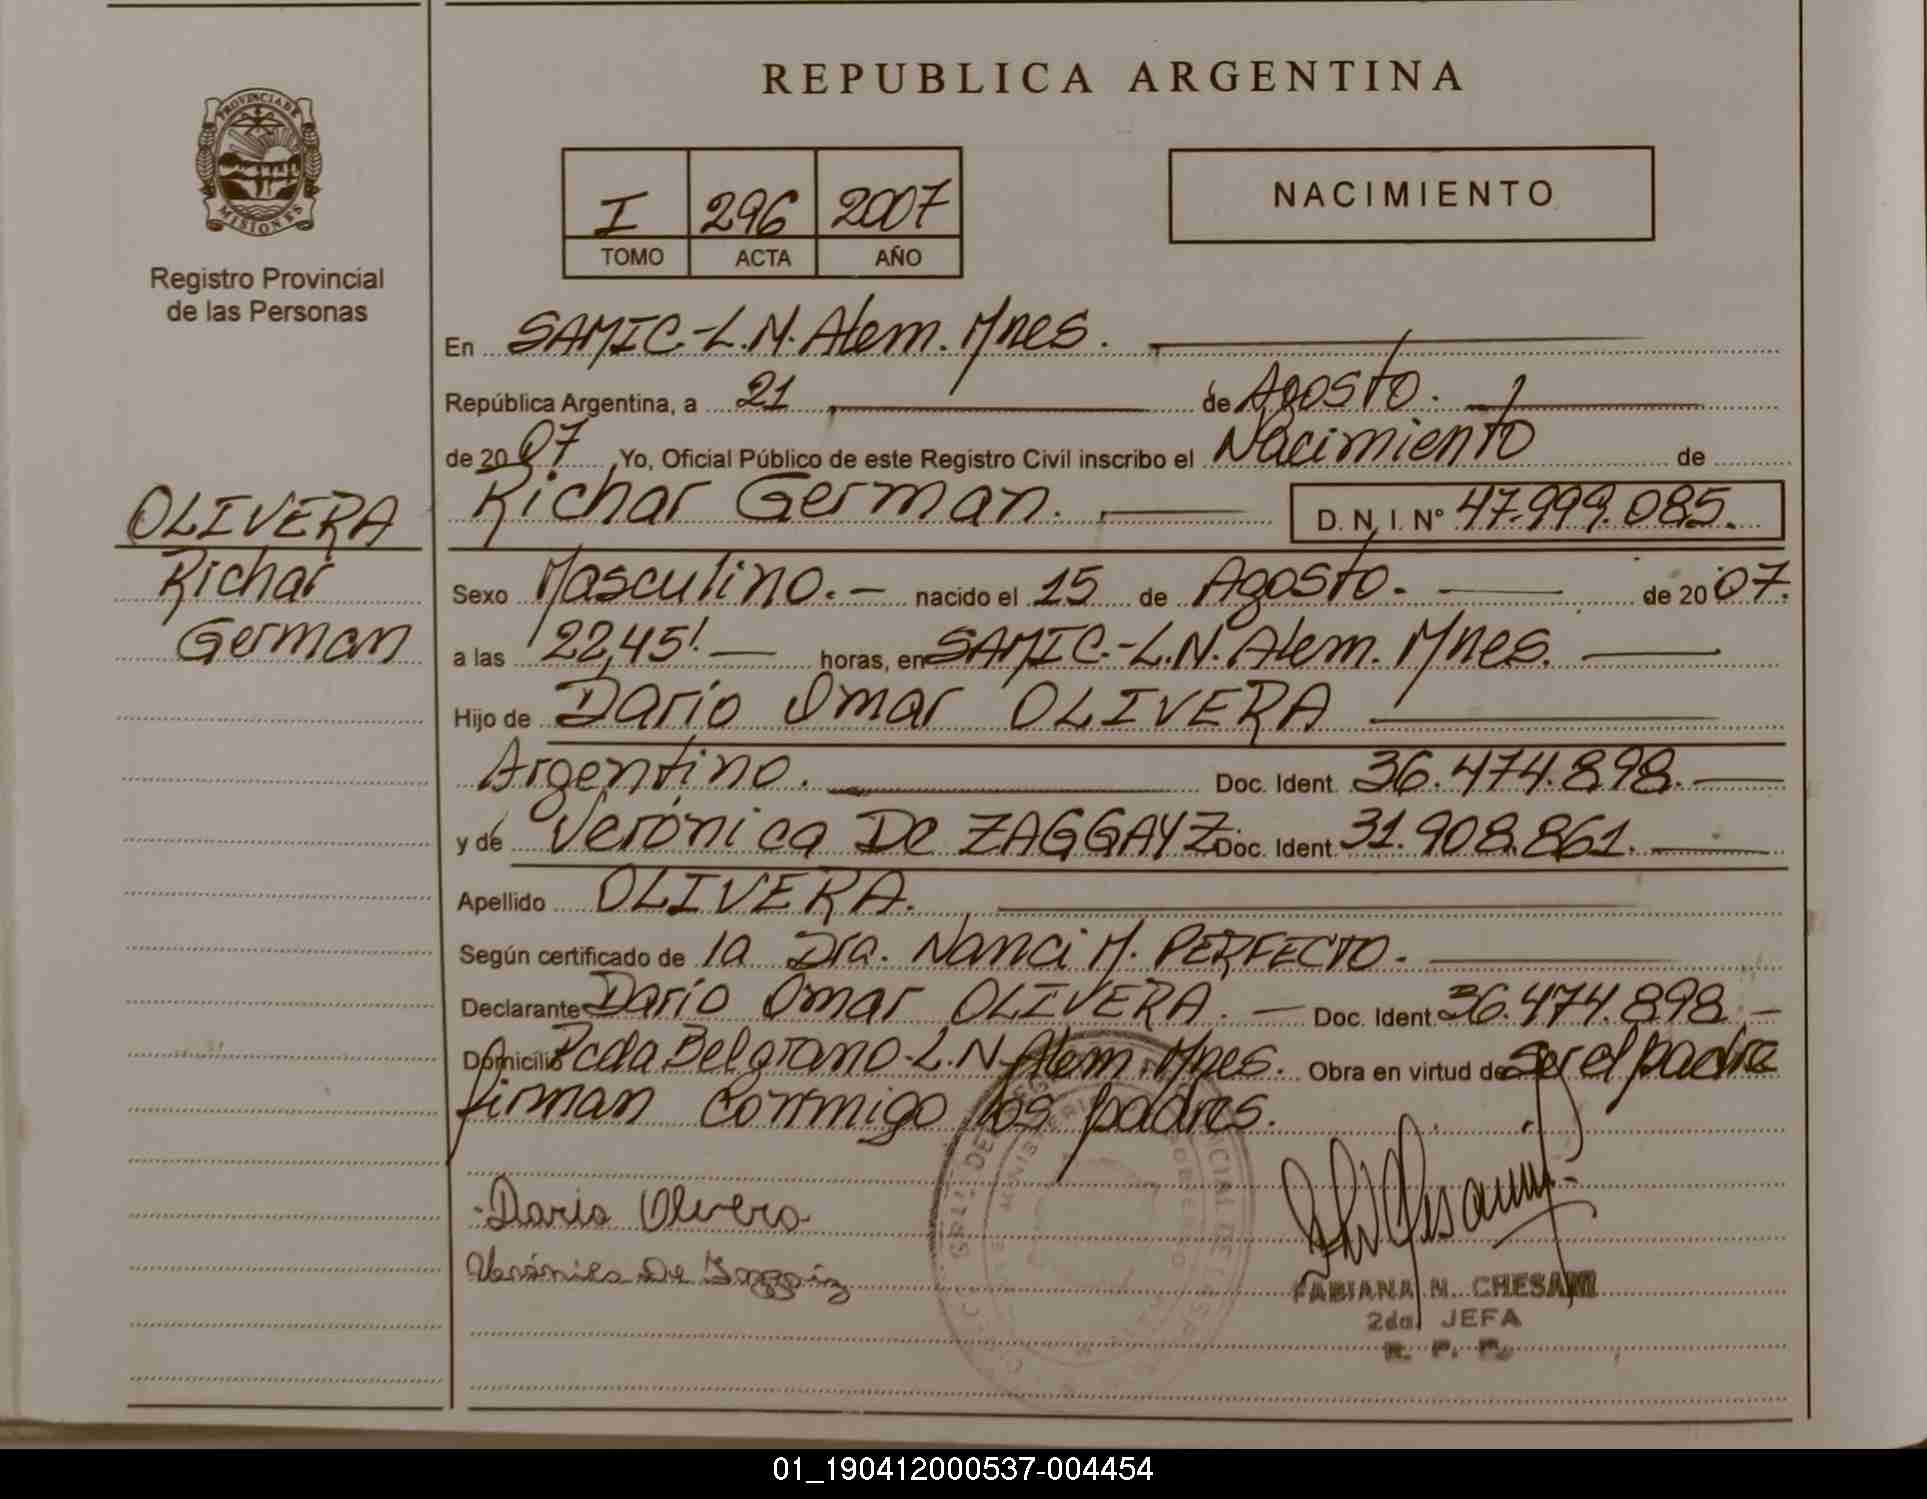 REPUBLICA ARGENTINA
PROVINCIA DE
MISIONES
Registro Provincial
de las Personas
I 296 2007
TOMO ACTA AÑO
NACIMIENTO
En SAMIC.-L.N.Alem.Mnes.
República Argentina, a 21 de Agosto.
de 2007 Yo, Oficial Público de este Registro Civil inscribo el Nacimiento de
Richar German. D. N. I. N° 47.999.085.
OLIVERA
Richar
German
Sexo Masculino.- nacido el 15 de Agosto. de 2007.
a las 22,45'. horas, en SAMIC.-L.N.Alem.Mnes.
Hijo de Darío Omar OLIVERA
Argentino. Doc. Ident. 36.474.898.
y de Verónica De ZAGGAYZ Doc. Ident. 31.908.861.
Apellido OLIVERA.
Según certificado de la Dra. Nanci M. PERFECTO.
Declarante Darío Omar OLIVERA. Doc. Ident. 36.474.898
Domicilio Pcda Belgrano-L.N.Alem.Mnes. Obra en virtud de ser el padre
firman conmigo los padres.
Dario Olivera
Verónica De
FABIANA N. CHESANI
2da JEFA
R. P. P.
01_190412000537-004454